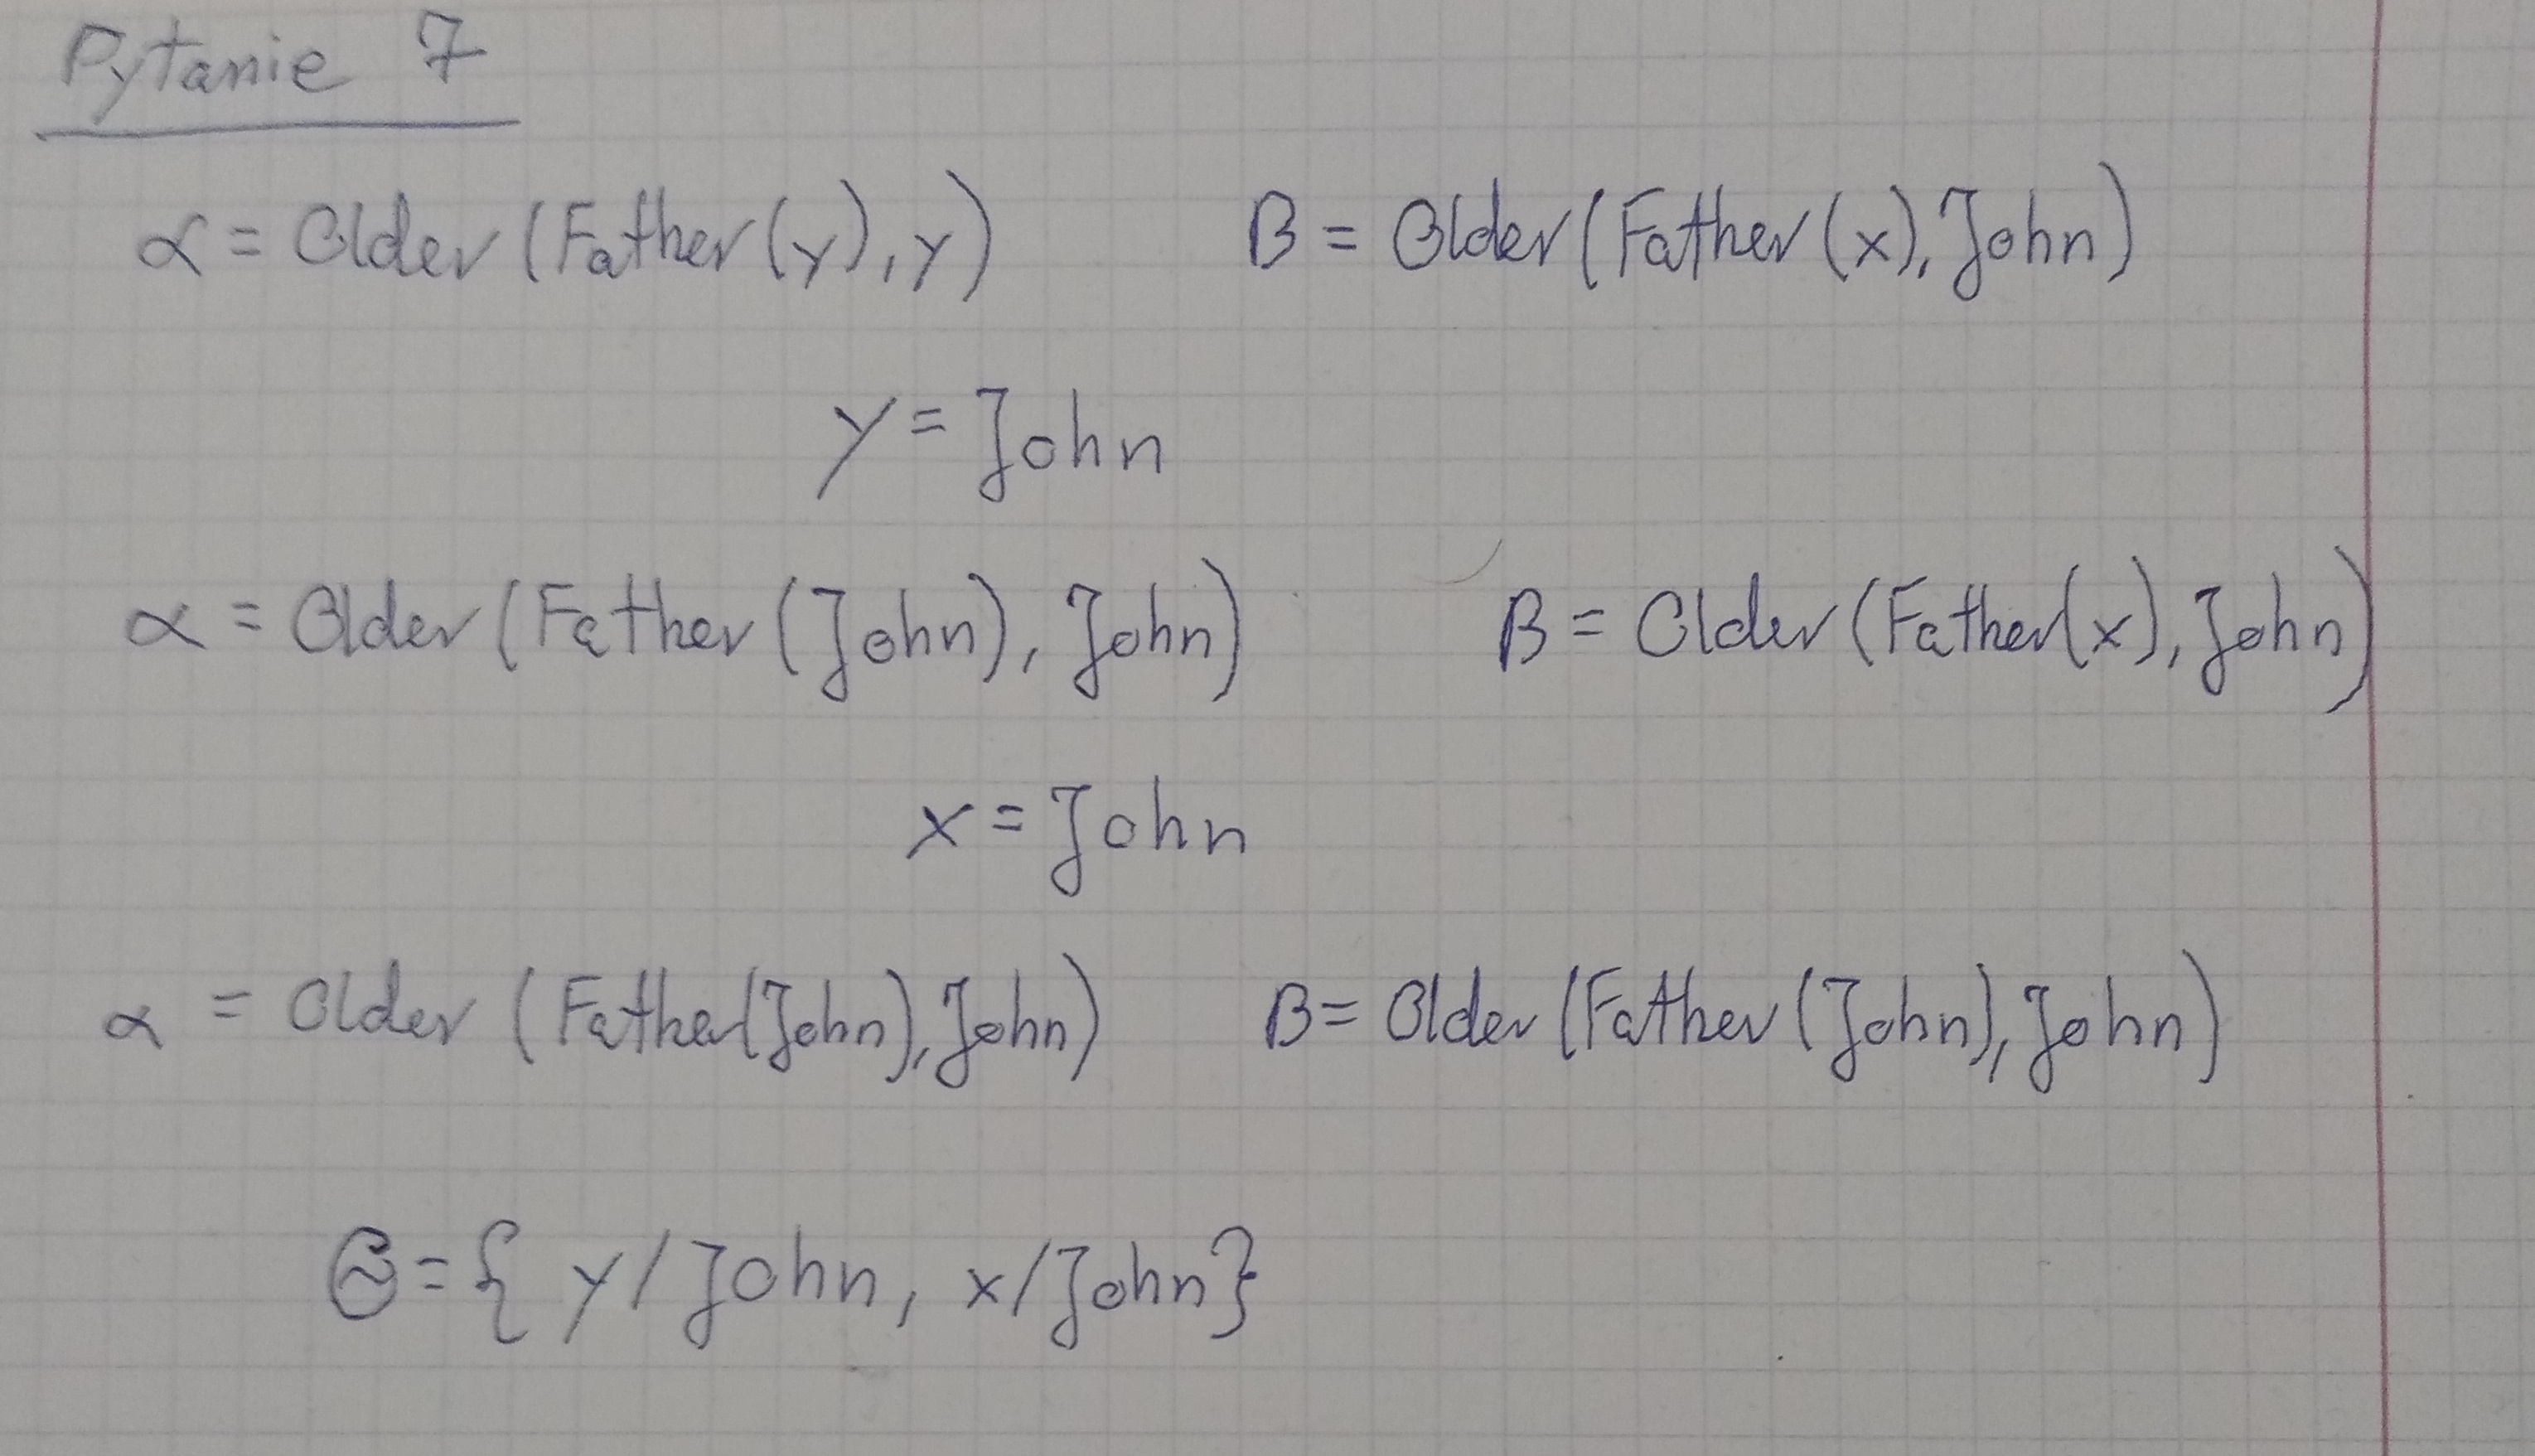 Pytanie 7
α = Older (Father (y), y) β = Older (Father (x), John)
y = John
α = Older (Father (John), John) β = Older (Father (x), John)
x = John
α = Older (Father (John), John) β = Older (Father (John), John)
Θ = { y / John, x / John}